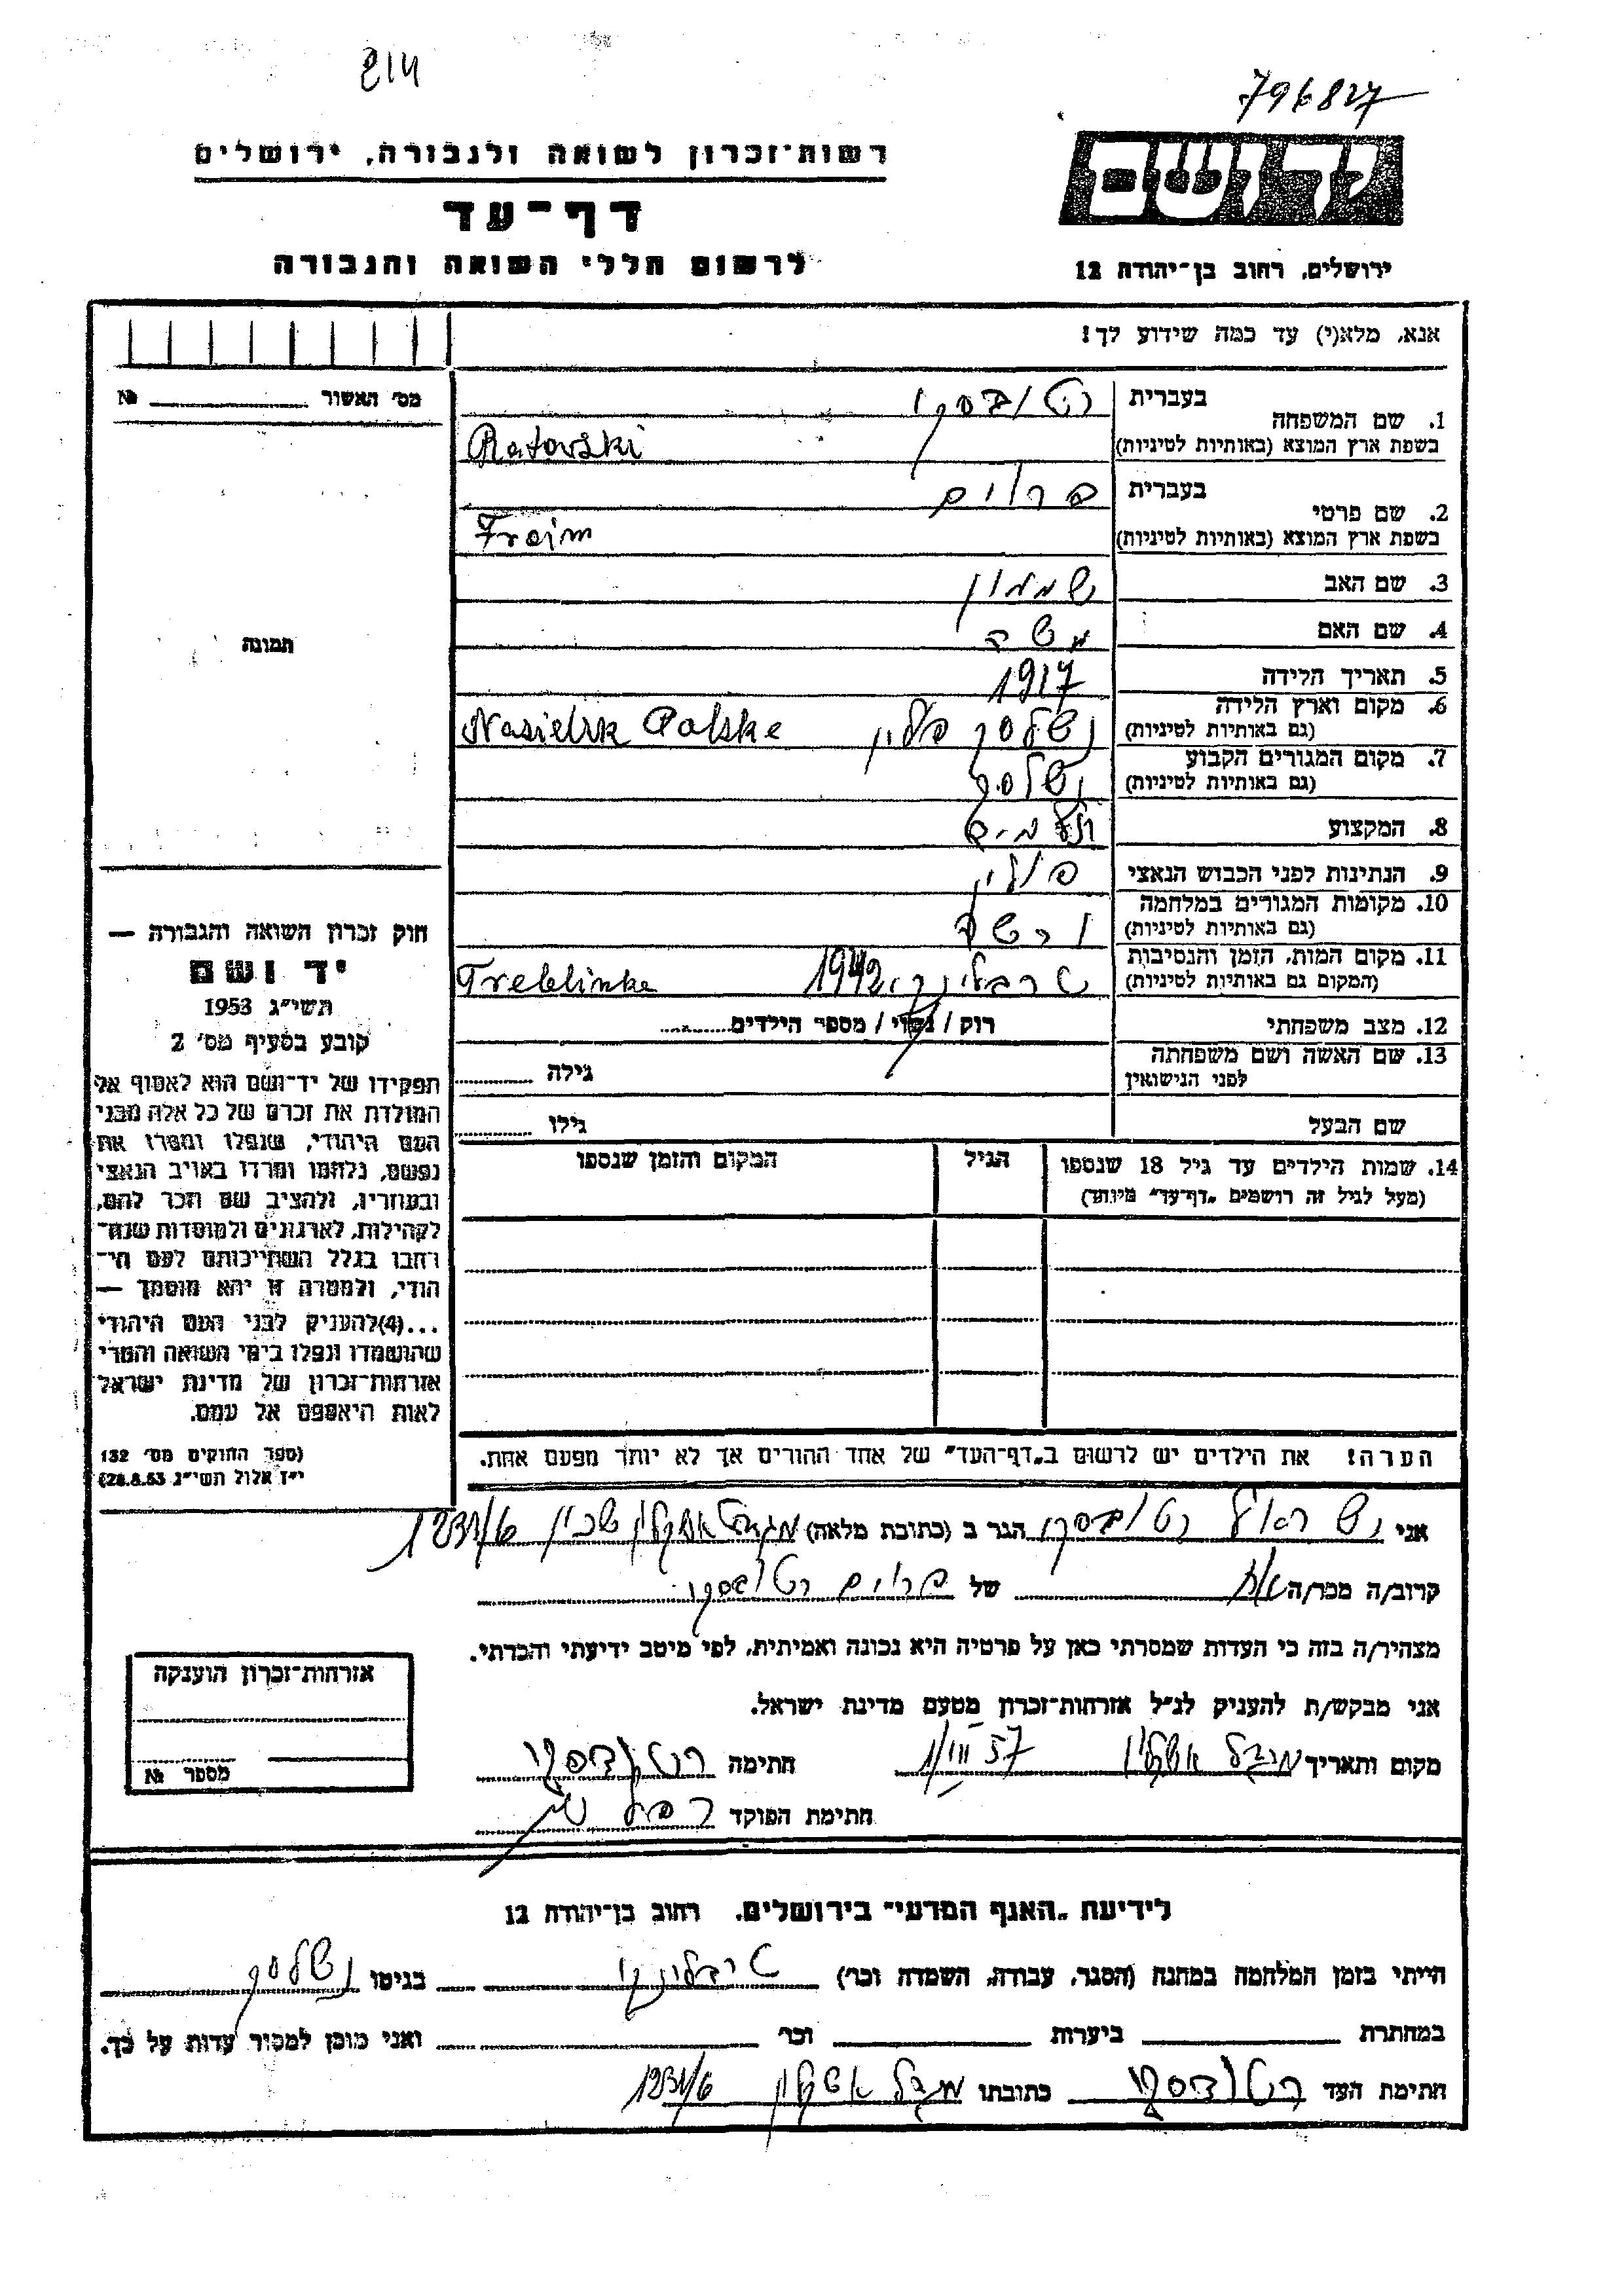 214
796827
יד ושם
רשות־זכרון לשואה ולגבורה, ירושלים
דף־עד
לרשום חללי השואה והגבורה
ירושלים, רחוב בן־יהודה 12
אנא, מלא(י) עד כמה שידוע לך!
מס' האשור № ________
1. שם המשפחה
בעברית רטובסקי
בשפת ארץ המוצא (באותיות לטיניות) Ratovski
2. שם פרטי
בעברית פרוים
בשפת ארץ המוצא (באותיות לטיניות) Froim
3. שם האב שמעון
4. שם האם
5. תאריך הלידה 1917
6. מקום וארץ הלידה נשלסק פולין Nasielsk Polske
(גם באותיות לטיניות)
7. מקום המגורים הקבוע נשלסק
(גם באותיות לטיניות)
8. המקצוע
9. הנתינות לפני הכבוש הנאצי פולין
10. מקומות המגורים במלחמה ורשה
(גם באותיות לטיניות)
11. מקום המות, הזמן והנסיבות טרבלינקי 1942 Treblinke
(המקום גם באותיות לטיניות)
12. מצב משפחתי רוק / נשוי / מספר הילדים........
13. שם האשה ושם משפחתה גילה ........
לפני הנישואין
שם הבעל גילו ........
14. שמות הילדים עד גיל 18 שנספו הגיל המקום והזמן שנספו
(מעל לגיל זה רושמים „דף־עד" מיוחד)
הערה! את הילדים יש לרשום ב„דף־העד" של אחד ההורים אך לא יותר מפעם אחת.
תמונה
חוק זכרון השואה והגבורה —
יד ושם
תשי"ג 1953
קובע בסעיף מס' 2
תפקידו של יד־ושם הוא לאסוף אל
המולדת את זכרם של כל אלה מבני
העם היהודי, שנפלו ומסרו את
נפשם, נלחמו ומרדו באויב הנאצי
ובעוזריו, ולהציב שם וזכר להם,
לקהילות, לארגונים ולמוסדות שנח־
רבו בגלל השתייכותם לעם הי־
הודי, ולמטרה זו יהא מוסמך —
...(4)להעניק לבני העם היהודי
שהושמדו ונפלו בימי השואה והמרי
אזרחות־זכרון של מדינת ישראל
לאות היאספם אל עמם.
(ספר החוקים מס' 132
י"ז אלול תשי"ג 28.8.53)
אני ישראל רטובסקי הגר ב (כתובת מלאה) מגדל אשקלון שכון 1231/6
קרוב/ה מכר/ה אח של פרוים רטובסקי
מצהיר/ה בזה כי העדות שמסרתי כאן על פרטיה היא נכונה ואמיתית, לפי מיטב ידיעתי והכרתי.
אני מבקש/ת להעניק לנ"ל אזרחות־זכרון מטעם מדינת ישראל.
מקום ותאריך מגדל אשקלון 1/III 57 חתימה רטובסקי
חתימת הפוקד
אזרחות־זכרון הוענקה
מספר №
לידיעת „האגף המדעי" בירושלים, רחוב בן־יהודה 12
הייתי בזמן המלחמה במחנה (הסגר, עבודה, השמדה וכו') טרבלינקי בגיטו נשלסק
במחתרת ________ ביערות ________ וכו' ________ ואני מוכן למסור עדות על כך.
חתימת העד רטובסקי כתובתו מגדל אשקלון 1231/6